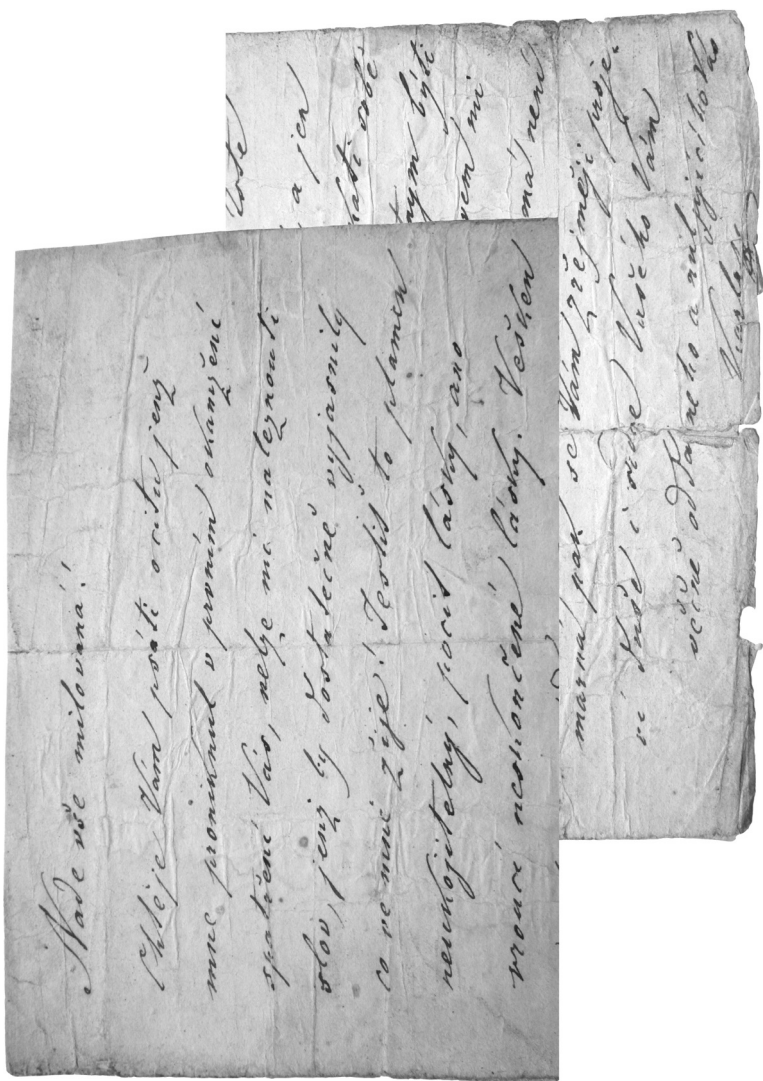 Nade vše milovaná!
Chtěje Vám psáti o citu jenž
mne proniknul v prvním okamžení
spatření Vás, nelze mi naleznouti
slov, jenž by dostatečně vyjasnily
co ve mně žije! Jestiš to plamen
neukojitelný, pocit lásky, ano
vroucí neskončené lásky. Vešken
a jen
býti
mi
není
marná pak se Vám zřejměji proje-
ví duše i srdce Vašeho Vám
věčně oddaného a milujícího Vás